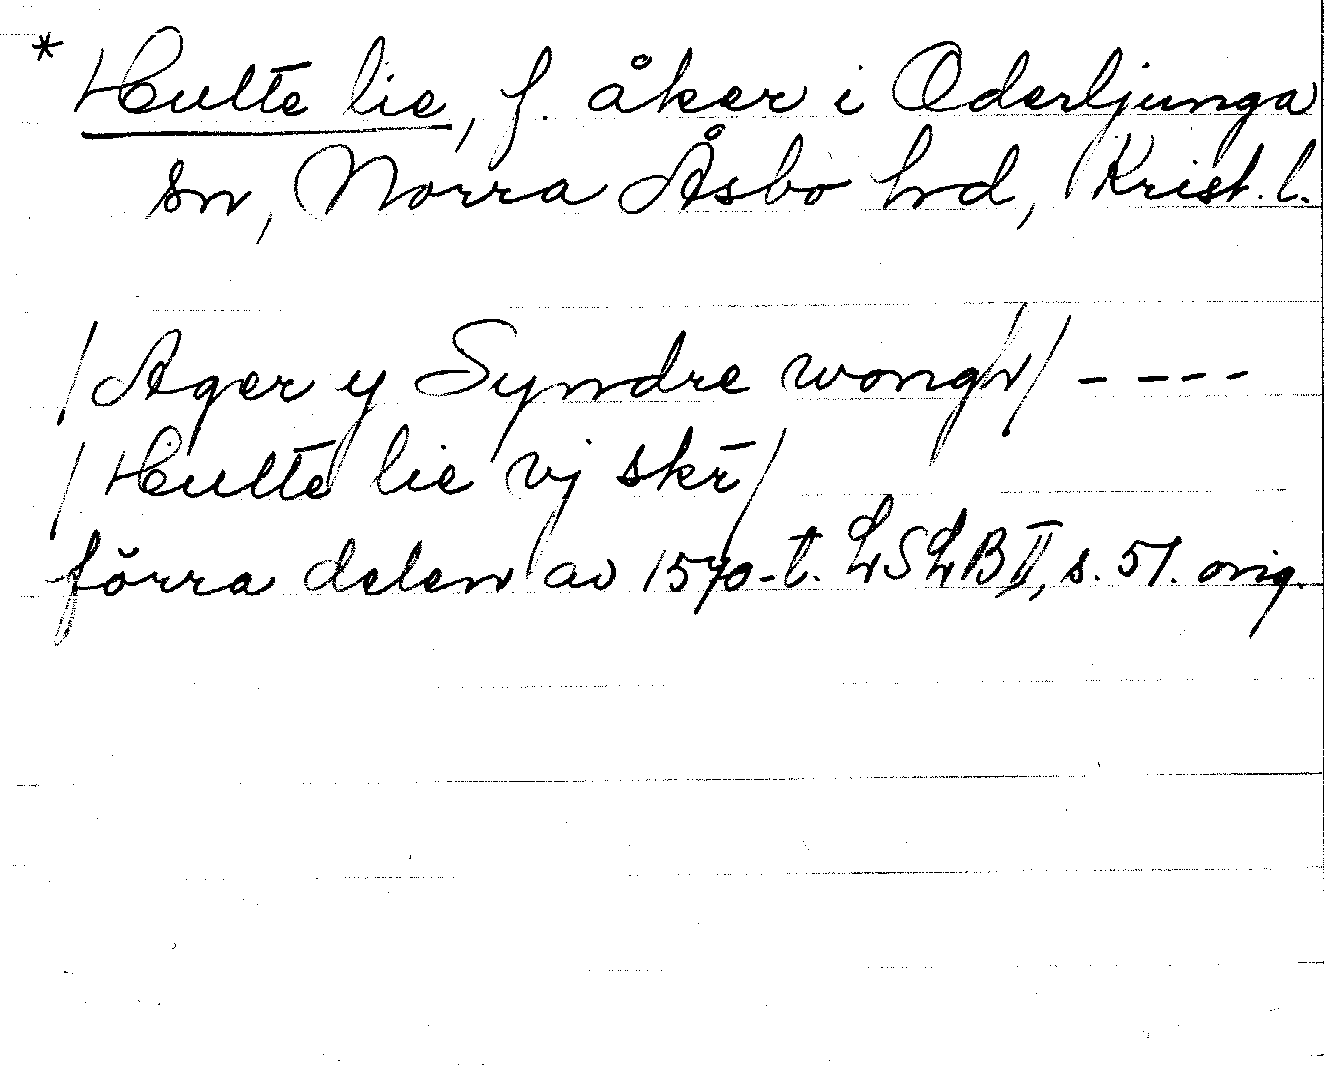 * Hulte lie, f. åker i Oderljunga
sn, Norra Åsbo hd, Krist. l.
/Ager y Syndre wongh/ - - - -
/Hulte lie vj skr/
förra delen av 1570-t. LSLB II, s. 51. orig.